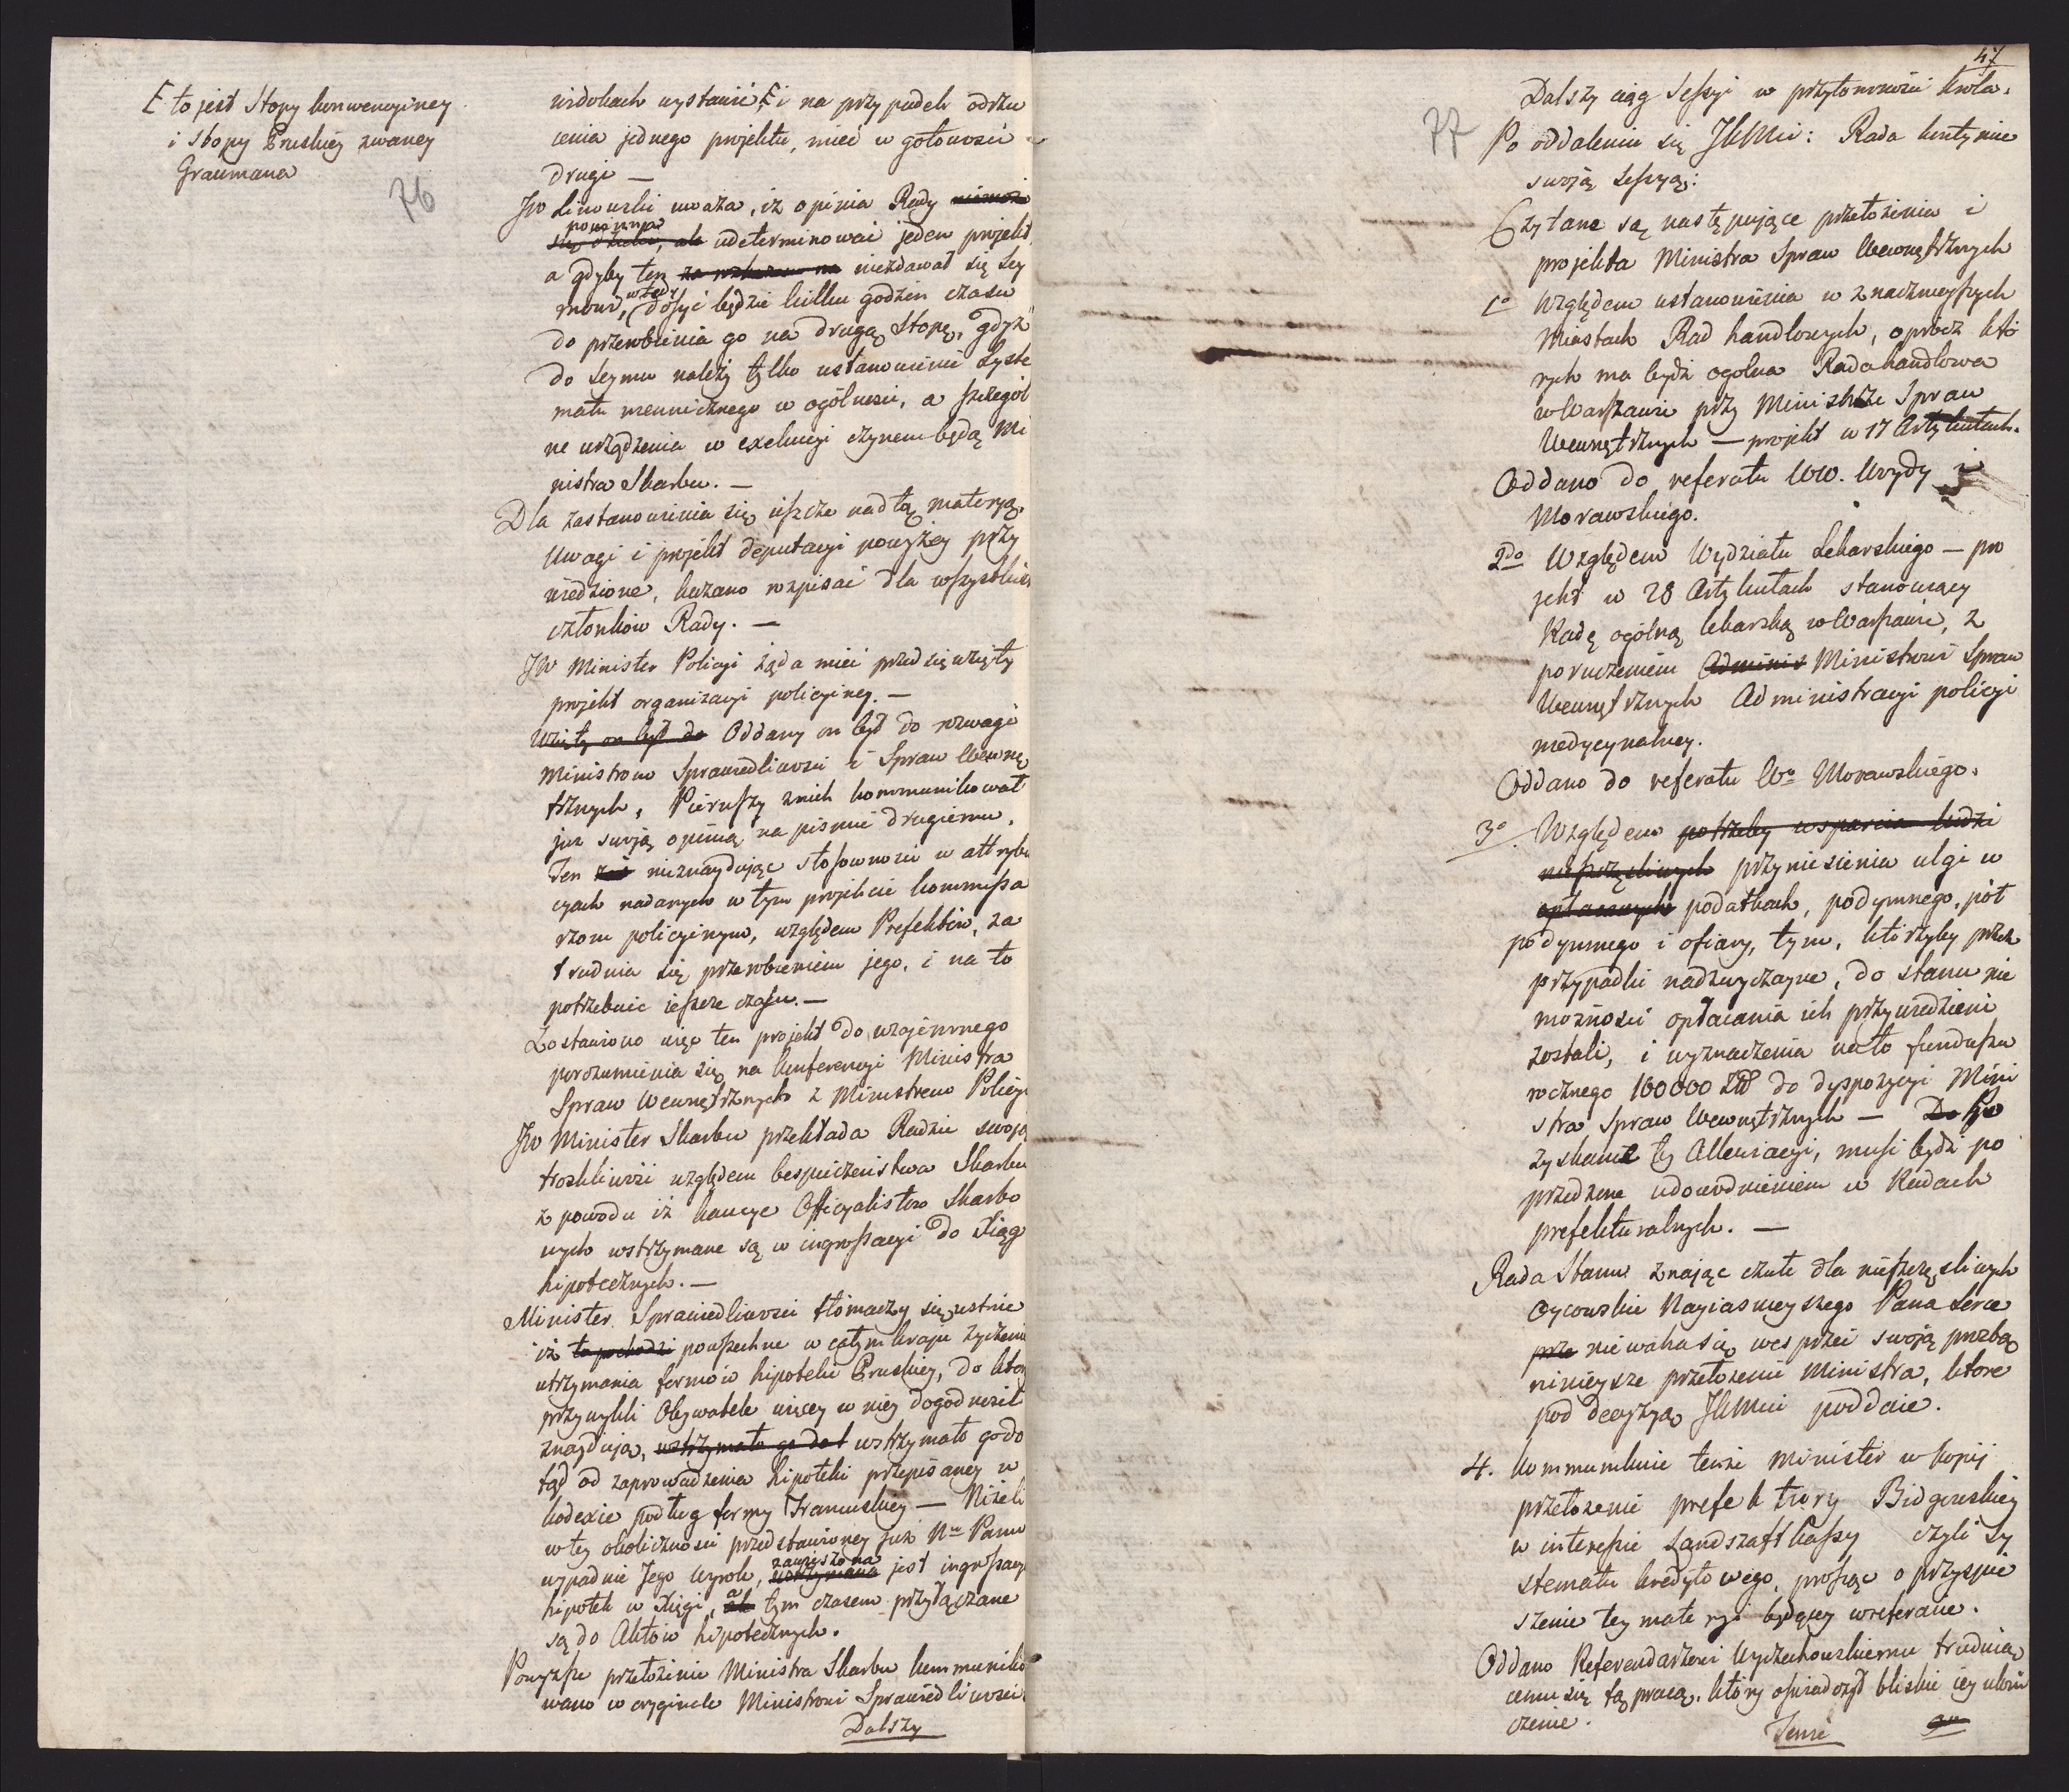 E to jest Stopy konwencyiney
i stopy Pruskiey zwaney
Graumana
76
widokach wystawić E i na przypadek odrzu
cenia jednego projektu, mieć w gotowości
drugi —
JW Linowski uważa, iż opinia Rady
powinna
udeterminować jeden projekt,
a gdyby ten niezdawał się Sey
mowi, wtedy dosyć będzie kilku godzin czasu
do przerobienia go na drugą Stopę, gdyż
do Seymu należy tylko ustanowienie Syste
matu menniczego w ogólności, a szczegól
ne urządzenia w exekucyi czynem będą Mi
nistra Skarbu. —
Dla zastanowienia się ieszcze nad tą materyą,
Uwagi i projekt deputacyi powyżey przy
wiedzione, kazano rozpisać dla wszystkich
członków Rady. —
JW Minister Policyi żąda mieć przedsięwzięty
projekt organizacyi policyiney. —
Wzięty on był do Oddany on był do rozwagi
Ministrom Sprawiedliwości i Spraw Wewnę
trznych, Pierwszy z nich kommunikował
już swoją opinią na piśmie drugiemu.
Ten zaś nieznayduiąc stosowności w attrybu
cyach nadanych w tym projekcie kommissa
rzom policyinym, względem Prefektów, za
trudnia się przerobieniem jego, i na to
potrzebuie ieszcze czasu. —
Zostawiono więc ten projekt do wzaiemnego
porozumienia się na konferencyi Ministra
Spraw Wewnętrznych z Ministrem Policyi
JW Minister Skarbu przekłada Radzie swoją
troskliwość względem bespieczeństwa Skarbu
z powodu iż kaucye Officyalistów Skarbo
wych wstrzymane są w ingrossacyi do Xiąg
hipotecznych. —
Minister Sprawiedliwości tłomaczy się ustnie
iż to pochodzi powszechne w całym kraju życzenie
utrzymania formów hipoteki Pruskiey, do którey
przywykli Obywatele więcey w niey dogodności
znayduią, wstrzymało go dot wstrzymało go do
tąd od zaprowadzenia hipoteki przepisaney w
kodexie podług formy Francuskiey — Niżeli
w tey okoliczności przedstawioney już Nmu Panu
wypadnie Jego wyrok, zawieszona wstrzymana jest ingrossacya
hipotek w Xięgi, a tym czasem przyłączane
są do Aktów hipotecznych.
Powyższe przełożenie Ministra Skarbu kommuniko
wano w oryginale Ministrowi Sprawiedliwości.
Dalszy
47
77
Dalszy ciąg Sessyi w przytomności Króla.
Po oddaleniu się JKMci: Rada kontynuie
swoją sessyą:
Czytane są następujące przełożenia i
projekta Ministra Spraw Wewnętrznych
1o Względem ustanowienia w znacznieyszych
Miastach Rad handlowych, oprócz któ
rych ma bydź ogólna Rada handlowa
w Warszawie przy Ministrze Spraw
Wewnętrznych — projekt w 17 Artykułach.
Oddano do referatu WW. Woydy i
Morawskiego.
2do Względem Wydziału Lekarskiego — pro
jekt w 28 Artykułach stanowiący
Radę ogólną lekarską w Warszawie, z
poruczeniem Adminis Ministrowi Spraw
Wewnętrznych Administracyi policyi
medycynalney.
Oddano do referatu Wo Morawskiego.
3o Względem potrzeby wsparcia ludzi
nieszczęśliwych przyniesienia ulgi w
podatkach, podymnego, pół
podymnego i ofiary, tym, którzyby przez
przypadki nadzwyczayne, do stanu nie
możności opłacania ich przywiedzieni
zostali, i wyznaczenia na to funduszu
rocznego 100000 Złł do dyspozycyi Mini
stra Spraw Wewnętrznych —
zyskanie tey Allewiacyi, musi bydź po
przedzone udowodnieniem w Radach
prefekturalnych. —
Rada Stanu znając czułe dla nieszczęśliwych
Oycowskie Nayiaśnieyszego Pana serce
prze nie waha się wesprzeć swoją prozbą
ninieysze przełożenie Ministra, które
pod decyzyą JKMci poddaie.
4. Kommunikuie tenże Minister w kopij
przełożenie prefektury Bidgoskiey
w interessie Landszaft kassy czyli Sy
stematu kredytowego, prosząc o przyspie
szenie tey materyi będącey w referacie.
Oddano Referendarzowi Wyczechowskiemu trudnią
cemu się tą pracą, który oświadczył bliskie iey ukoń
czenie.
Tenże